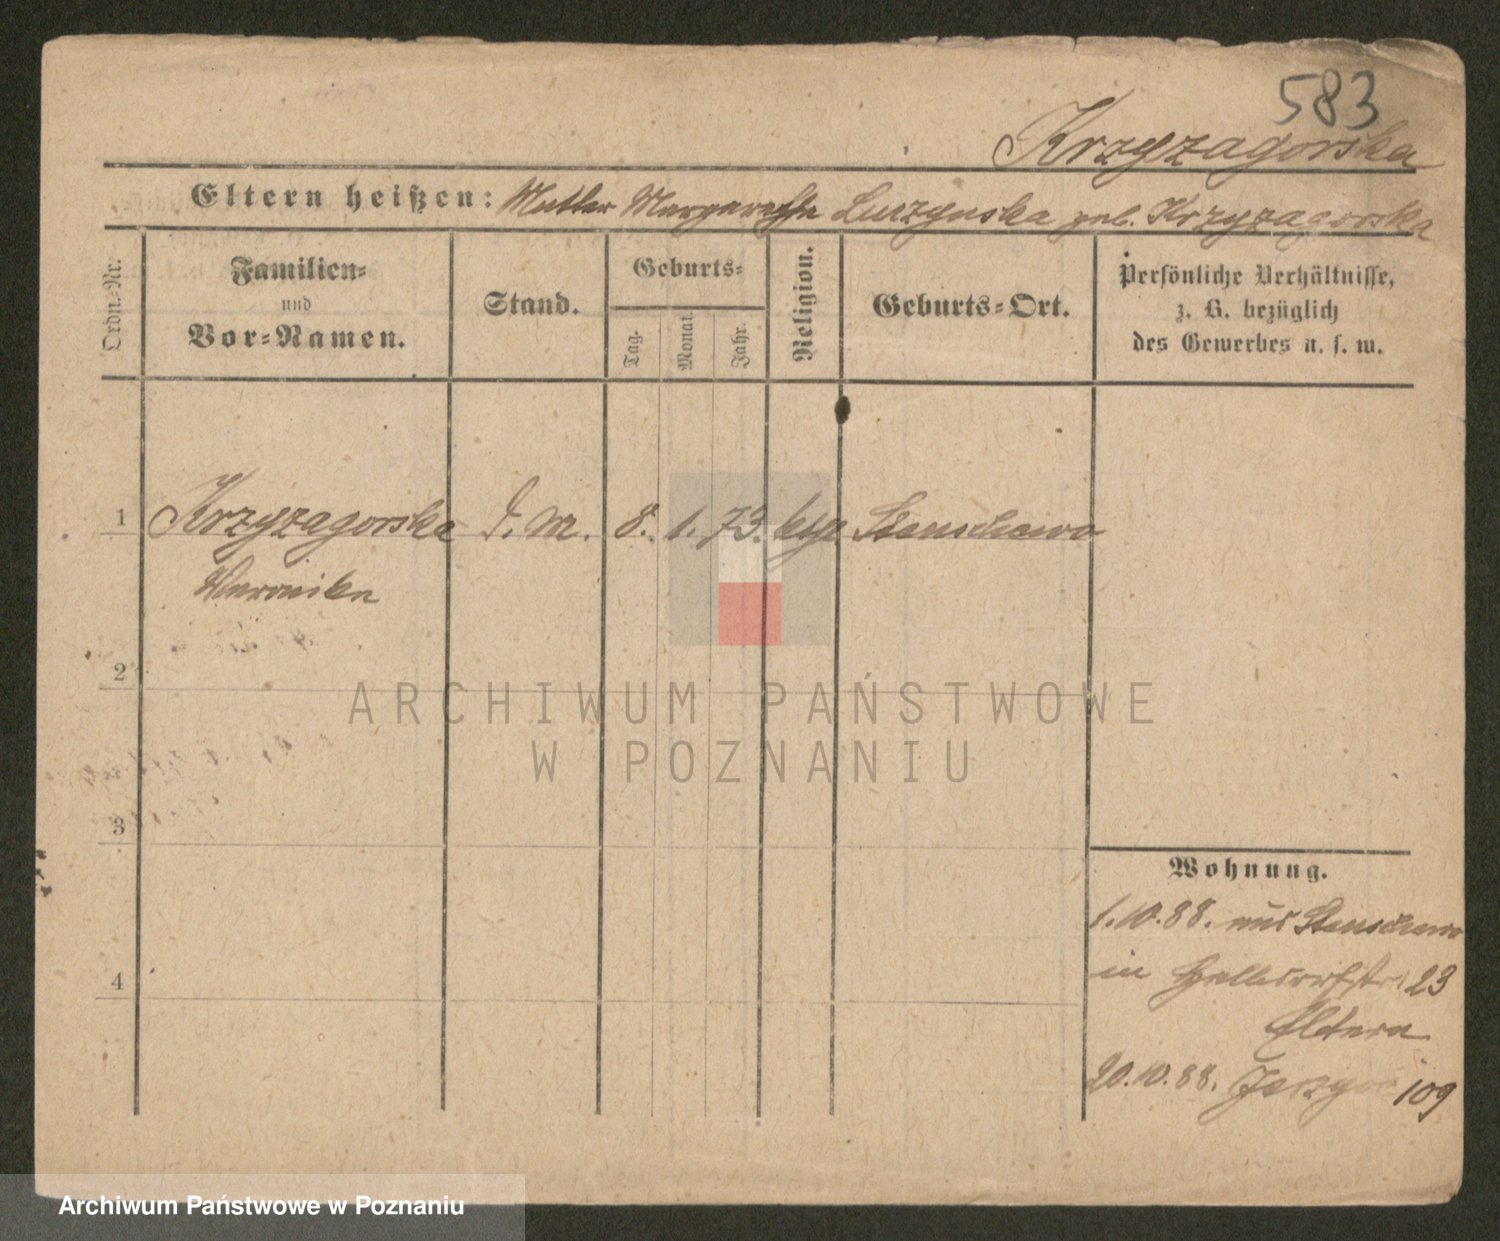 583
Krzyzagorska
Eltern heißen: Mutter Margarethe Luczynska geb. Krzyzagorska
Ordn.-Nr.
Familien-
und
Vor-Namen.
Stand.
Geburts-
Tag.
Monat.
Jahr.
Religion.
Geburts-Ort.
Persönliche Verhältnisse,
z. B. bezüglich
des Gewerbes u. s. w.
1 Krzyzagorska D. M. 8. 1. 73. kgl Stenschewo
Veronika
2
ARCHIWUM PAŃSTWOWE
W POZNANIU
3
Wohnung.
1.10.88. aus Stenschewo
4
in 23
Eltern
20.10.88. 109
Archiwum Państwowe w Poznaniu